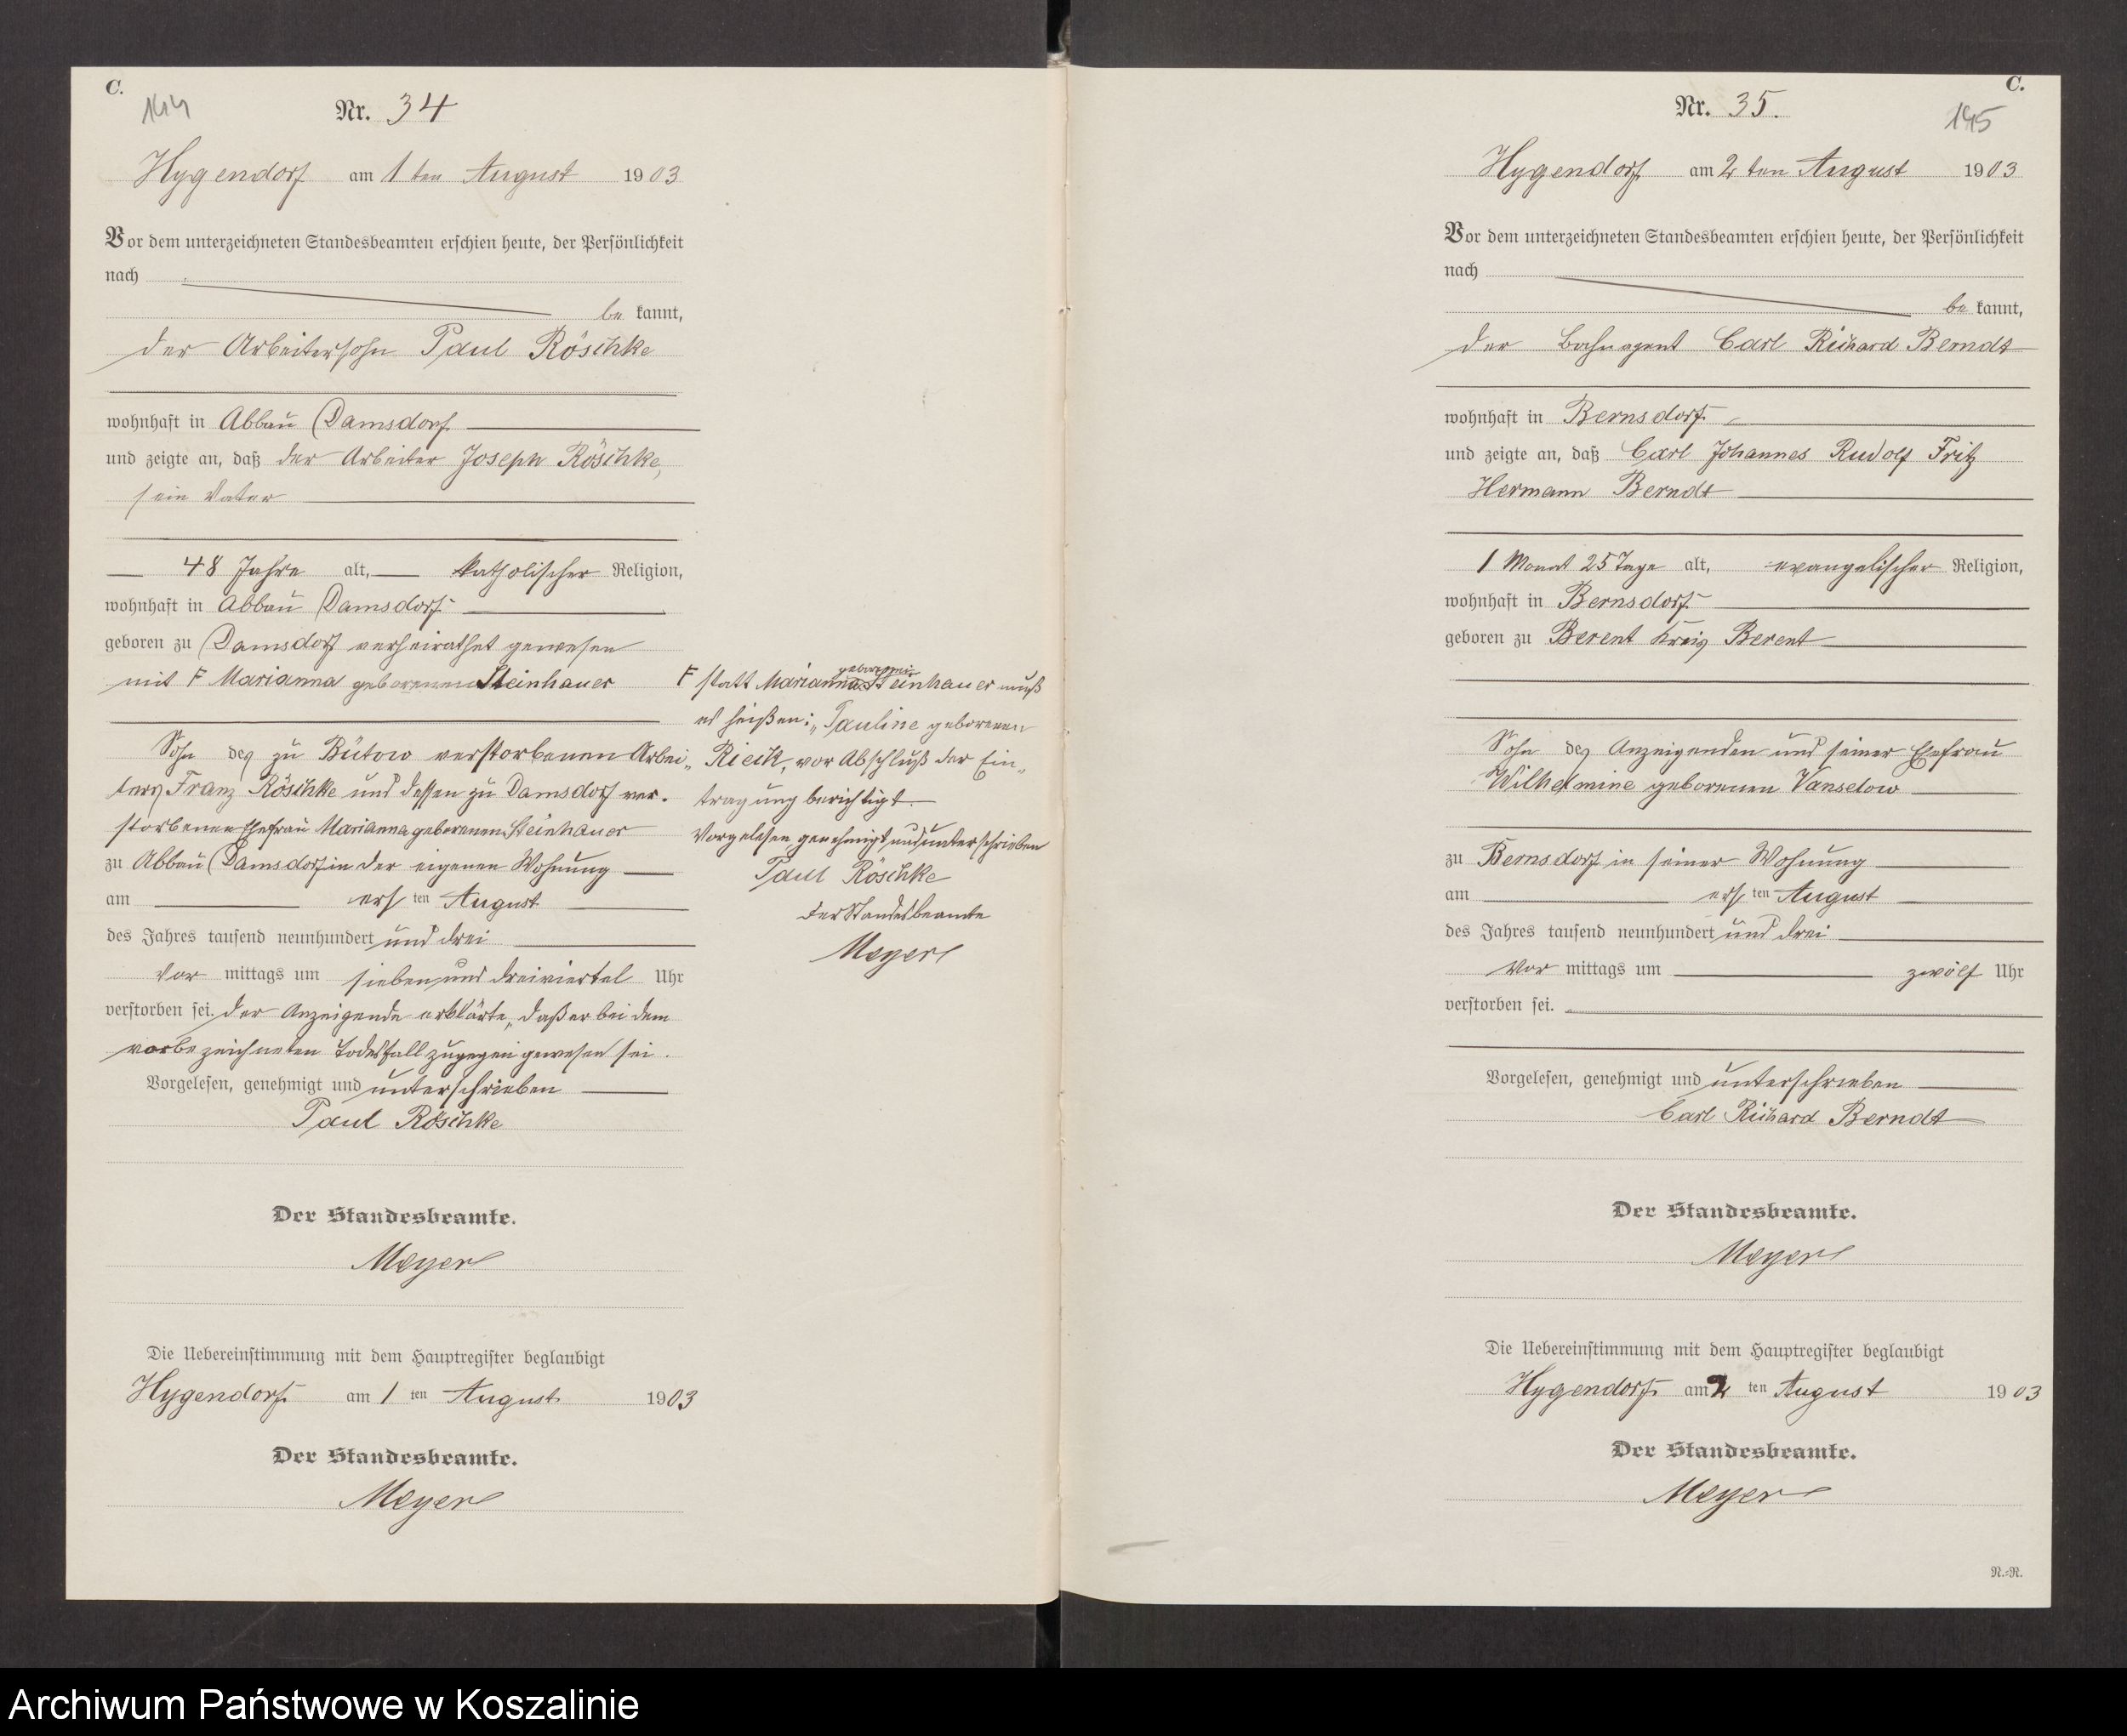 C.
144
Nr. 34
Hygendorf am 1 ten August 1903
Vor dem unterzeichneten Standesbeamten erschien heute, der Persönlichkeit
nach
be kannt,
der Arbeitersohn Paul Röschke
wohnhaft in Abbau Damsdorf
und zeigte an, daß der Arbeiter Joseph Röschke,
sein Vater
48 Jahre alt, katholischer Religion,
wohnhaft in Abbau Damsdorf
geboren zu Damsdorf verheirathet gewesen
mit F Marianna geborenen Steinhauer
Sohn des zu Bütow verstorbenen Arbei„
ters Franz Röschke und dessen zu Damsdorf ver.
storbenen Ehefrau Marianna geborenen Steinhauer
zu Abbau Damsdorf in der eigenen Wohnung
am ers ten August
des Jahres tausend neunhundert und drei
Vor mittags um sieben und dreiviertel Uhr
verstorben sei. Der Anzeigende erklärte, daß er bei dem
vorbezeichneten Todesfall zugegen gewesen sei.
Vorgelesen, genehmigt und unterschrieben
Paul Röschke
Der Standesbeamte.
Meyer
Die Uebereinstimmung mit dem Hauptregister beglaubigt
Hygendorf am 1 ten August 1903
Der Standesbeamte.
Meyer
F statt Marianna Steinhauer muß
es heißen: „Pauline geborenen
Rieck, vor Abschluß der Ein„
tragung berichtigt.
Vorgelesen, genehmigt und unterschrieben
Paul Röschke
Der Standesbeamte
Meyer
C.
145
Nr. 35.
Hygendorf am 2 ten August 1903
Vor dem unterzeichneten Standesbeamten erschien heute, der Persönlichkeit
nach
be kannt,
der Bahnagent Carl Richard Berndt
wohnhaft in Bernsdorf
und zeigte an, daß Carl Johannes Rudolf Fritz
Hermann Berndt
1 Monat 25 Tage alt, evangelischer Religion,
wohnhaft in Bernsdorf
geboren zu Berent Kreis Berent
Sohn des Anzeigenden und seiner Ehefrau
Wilhelmine geborenen Vanselow
zu Bernsdorf in seiner Wohnung
am ers ten August
des Jahres tausend neunhundert und drei
Vor mittags um zwölf Uhr
verstorben sei.
Vorgelesen, genehmigt und unterschrieben
Carl Richard Berndt
Der Standesbeamte.
Meyer
Die Uebereinstimmung mit dem Hauptregister beglaubigt
Hygendorf am 2 ten August 1903
Der Standesbeamte.
Meyer
N.-R.
Archiwum Państwowe w Koszalinie